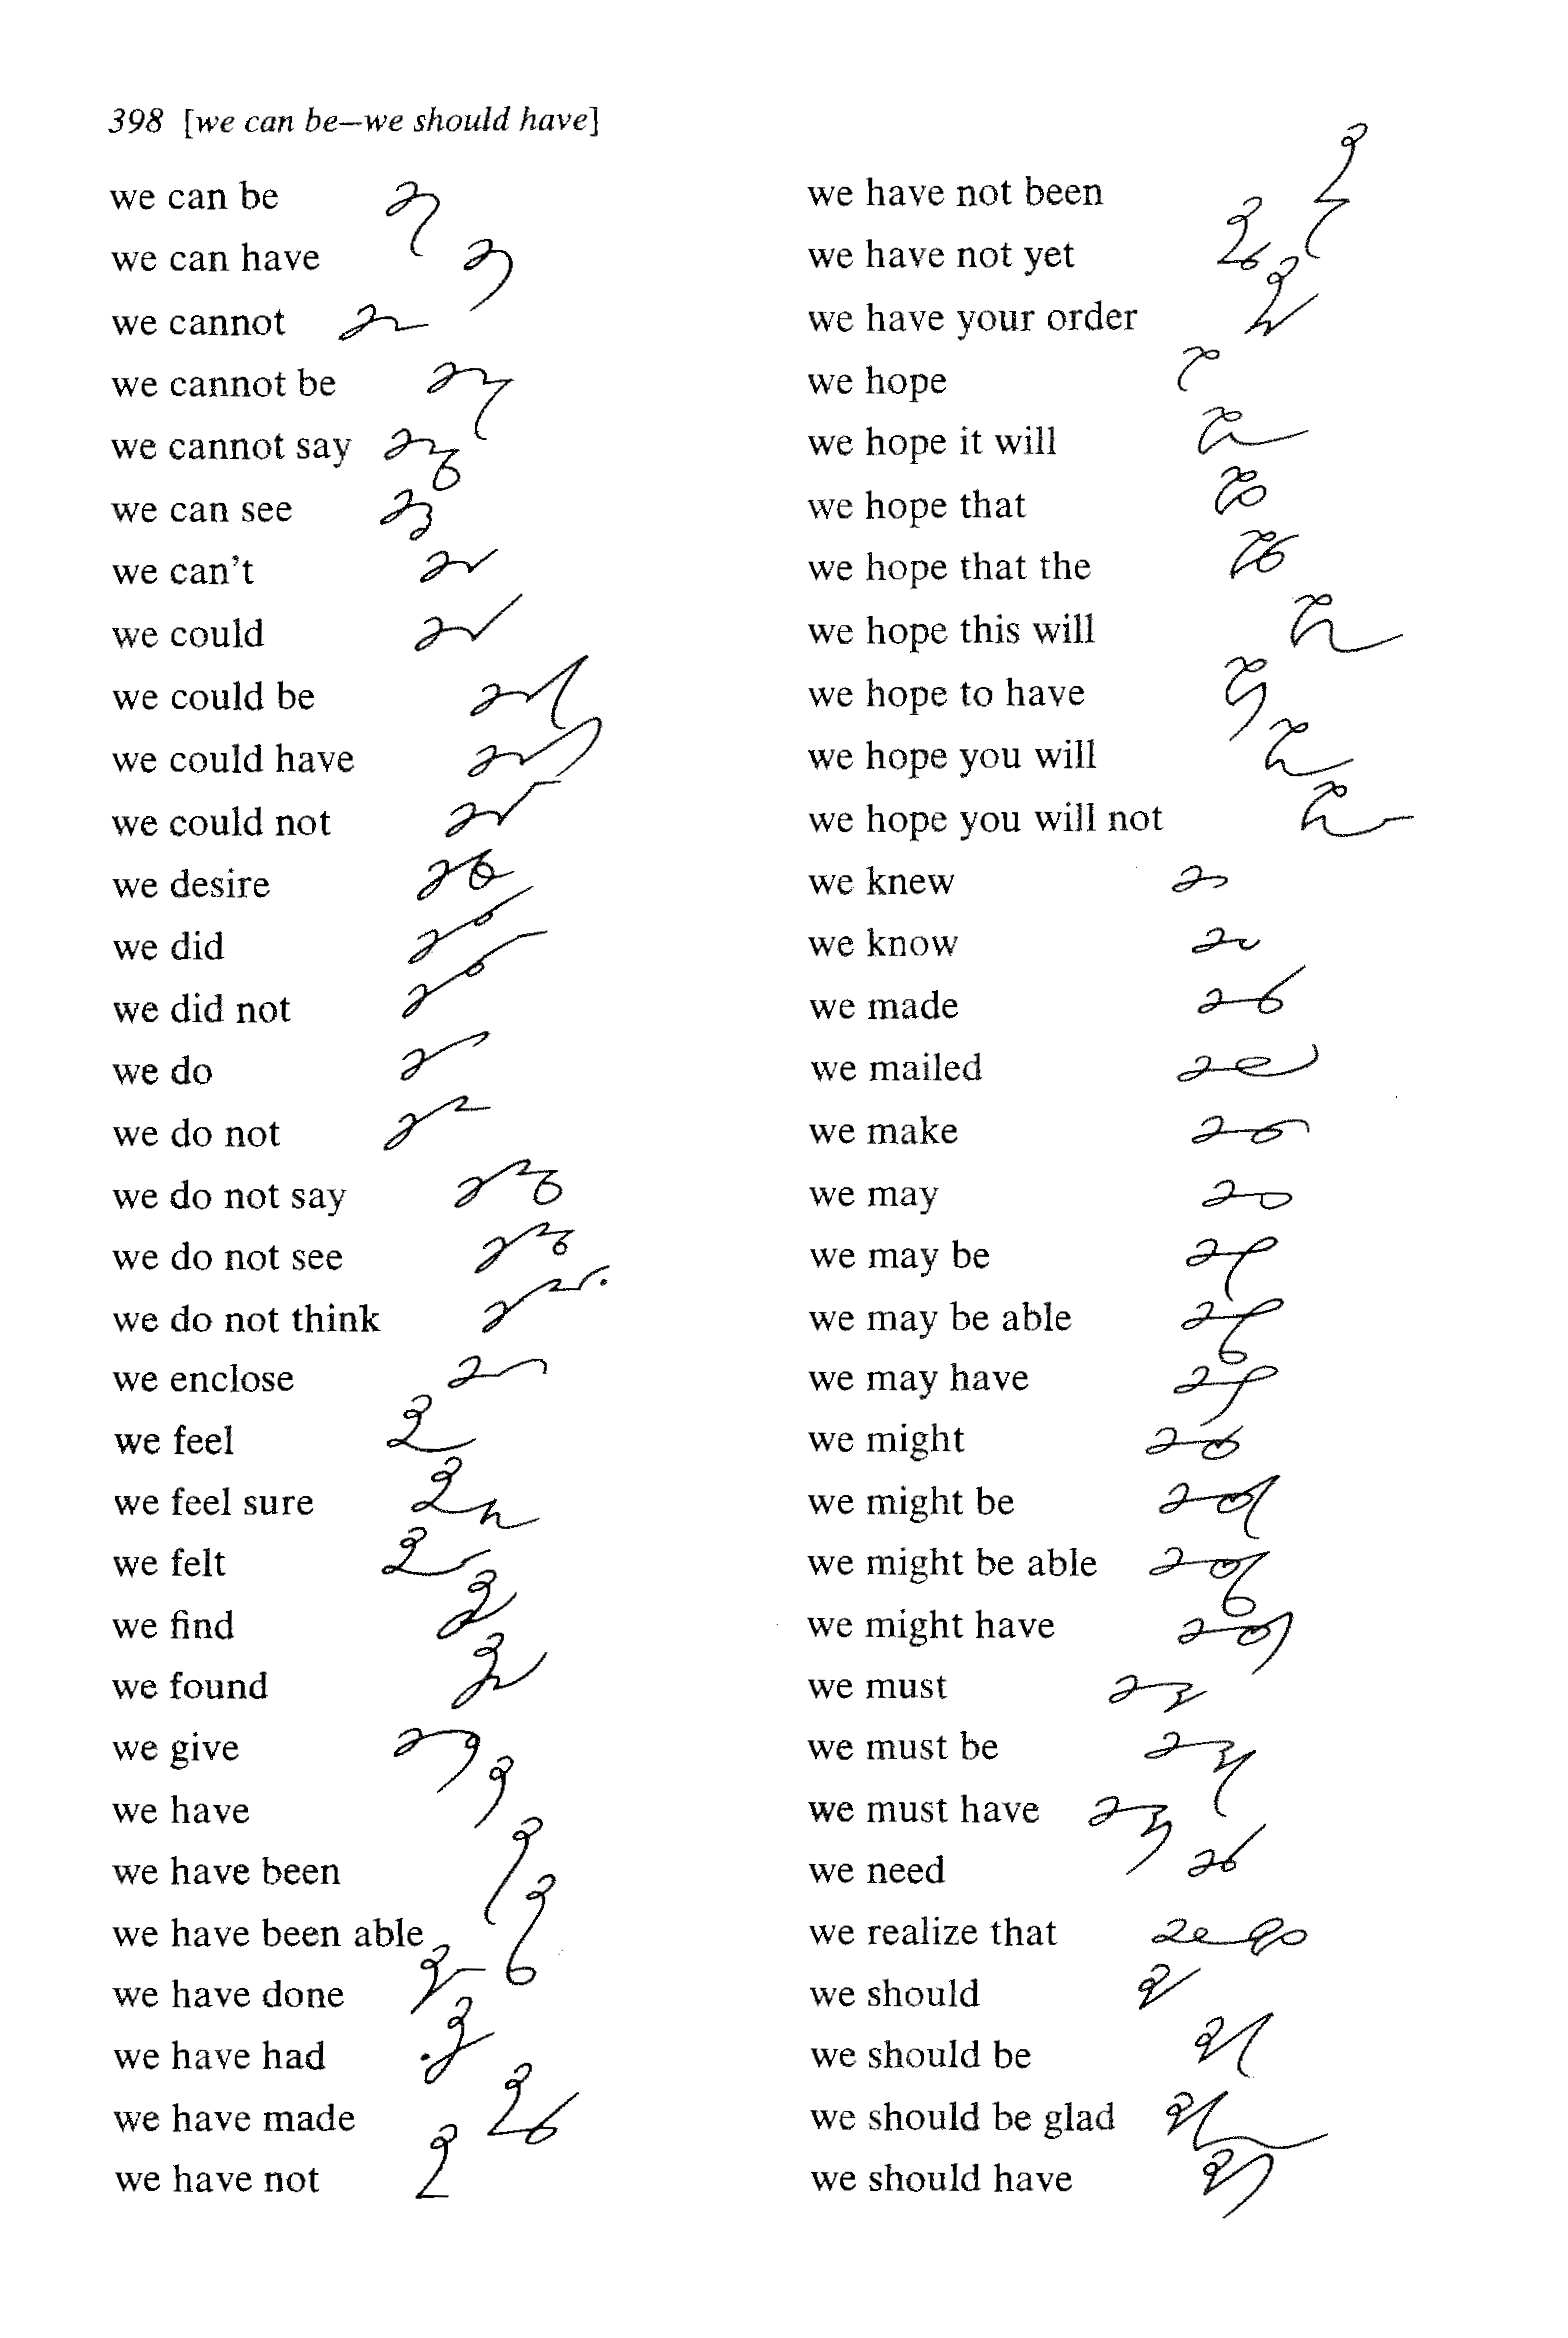 398 [we can be—we should have]
we can be
we can have
we cannot
we cannot be
we cannot say
we can see
we can't
we could
we could be
we could have
we could not
we desire
we did
we did not
we do
we do not
we do not say
we do not see
we do not think
we enclose
we feel
we feel sure
we felt
we find
we found
we give
we have
we have been
we have been able
we have done
we have had
we have made
we have not
we have not been
we have not yet
we have your order
we hope
we hope it will
we hope that
we hope that the
we hope this will
we hope to have
we hope you will
we hope you will not
we knew
we know
we made
we mailed
we make
we may
we may be
we may be able
we may have
we might
we might be
we might be able
we might have
we must
we must be
we must have
we need
we realize that
we should
we should be
we should be glad
we should have